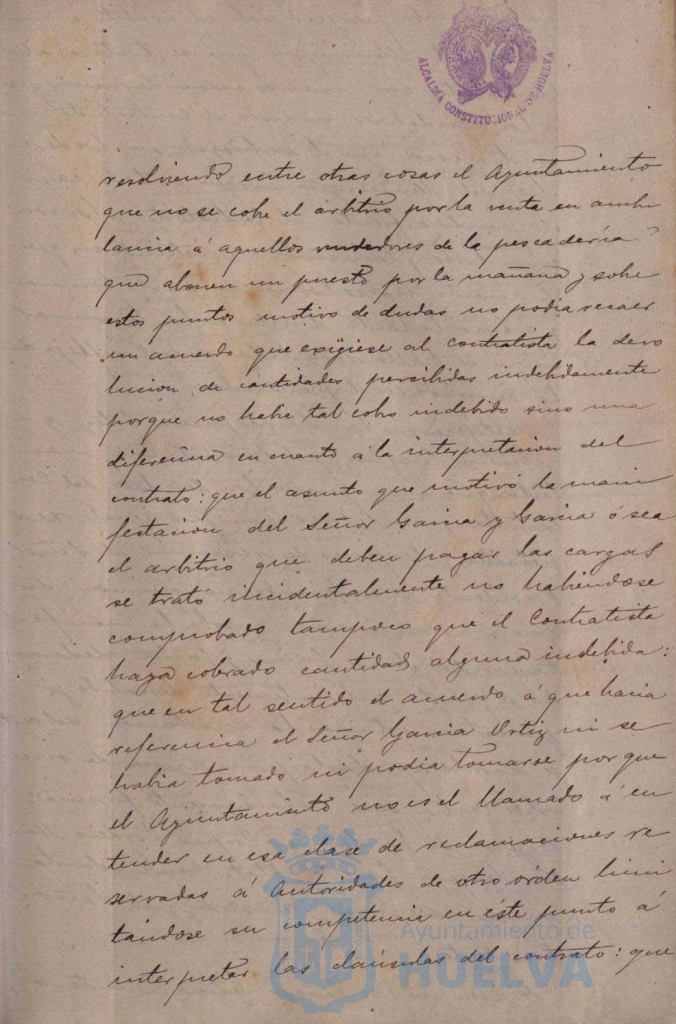 ALCALDÍA CONSTITUCIONAL DE HUELVA
resolviendo entre otras cosas el Ayuntamiento
que no se cobre el arbitrio por la venta en ambu
lancia á aquellos vendedores de la pescadería
que abonen un puesto por la mañana y sobre
estos puntos motivo de dudas no podia recaer
un acuerdo que exijiese al contratista la devo
lucion de cantidades percibidas indebidamente
porque no habia tal cobro indebido sino una
diferencia en cuanto á la interpretacion del
contrato: que el asunto que motivó la mani
festacion del Señor Garcia y Garcia ó sea
el arbitrio que deben pagar las cargas
se trató incidentalmente no habiendose
comprobado tampoco que el Contratista
haya cobrado cantidad alguna indebida:
que en tal sentido el acuerdo á que hacia
referencia el Señor Garcia Ortiz ni se
habia tomado ni podia tomarse porque
el Ayuntamiento no es el llamado á en
tender en esa clase de reclamaciones re
servadas á autoridades de otro órden limi
tándose su competencia en éste punto á
interpretar las claúsulas del contrato: que
Ayuntamiento de
HUELVA